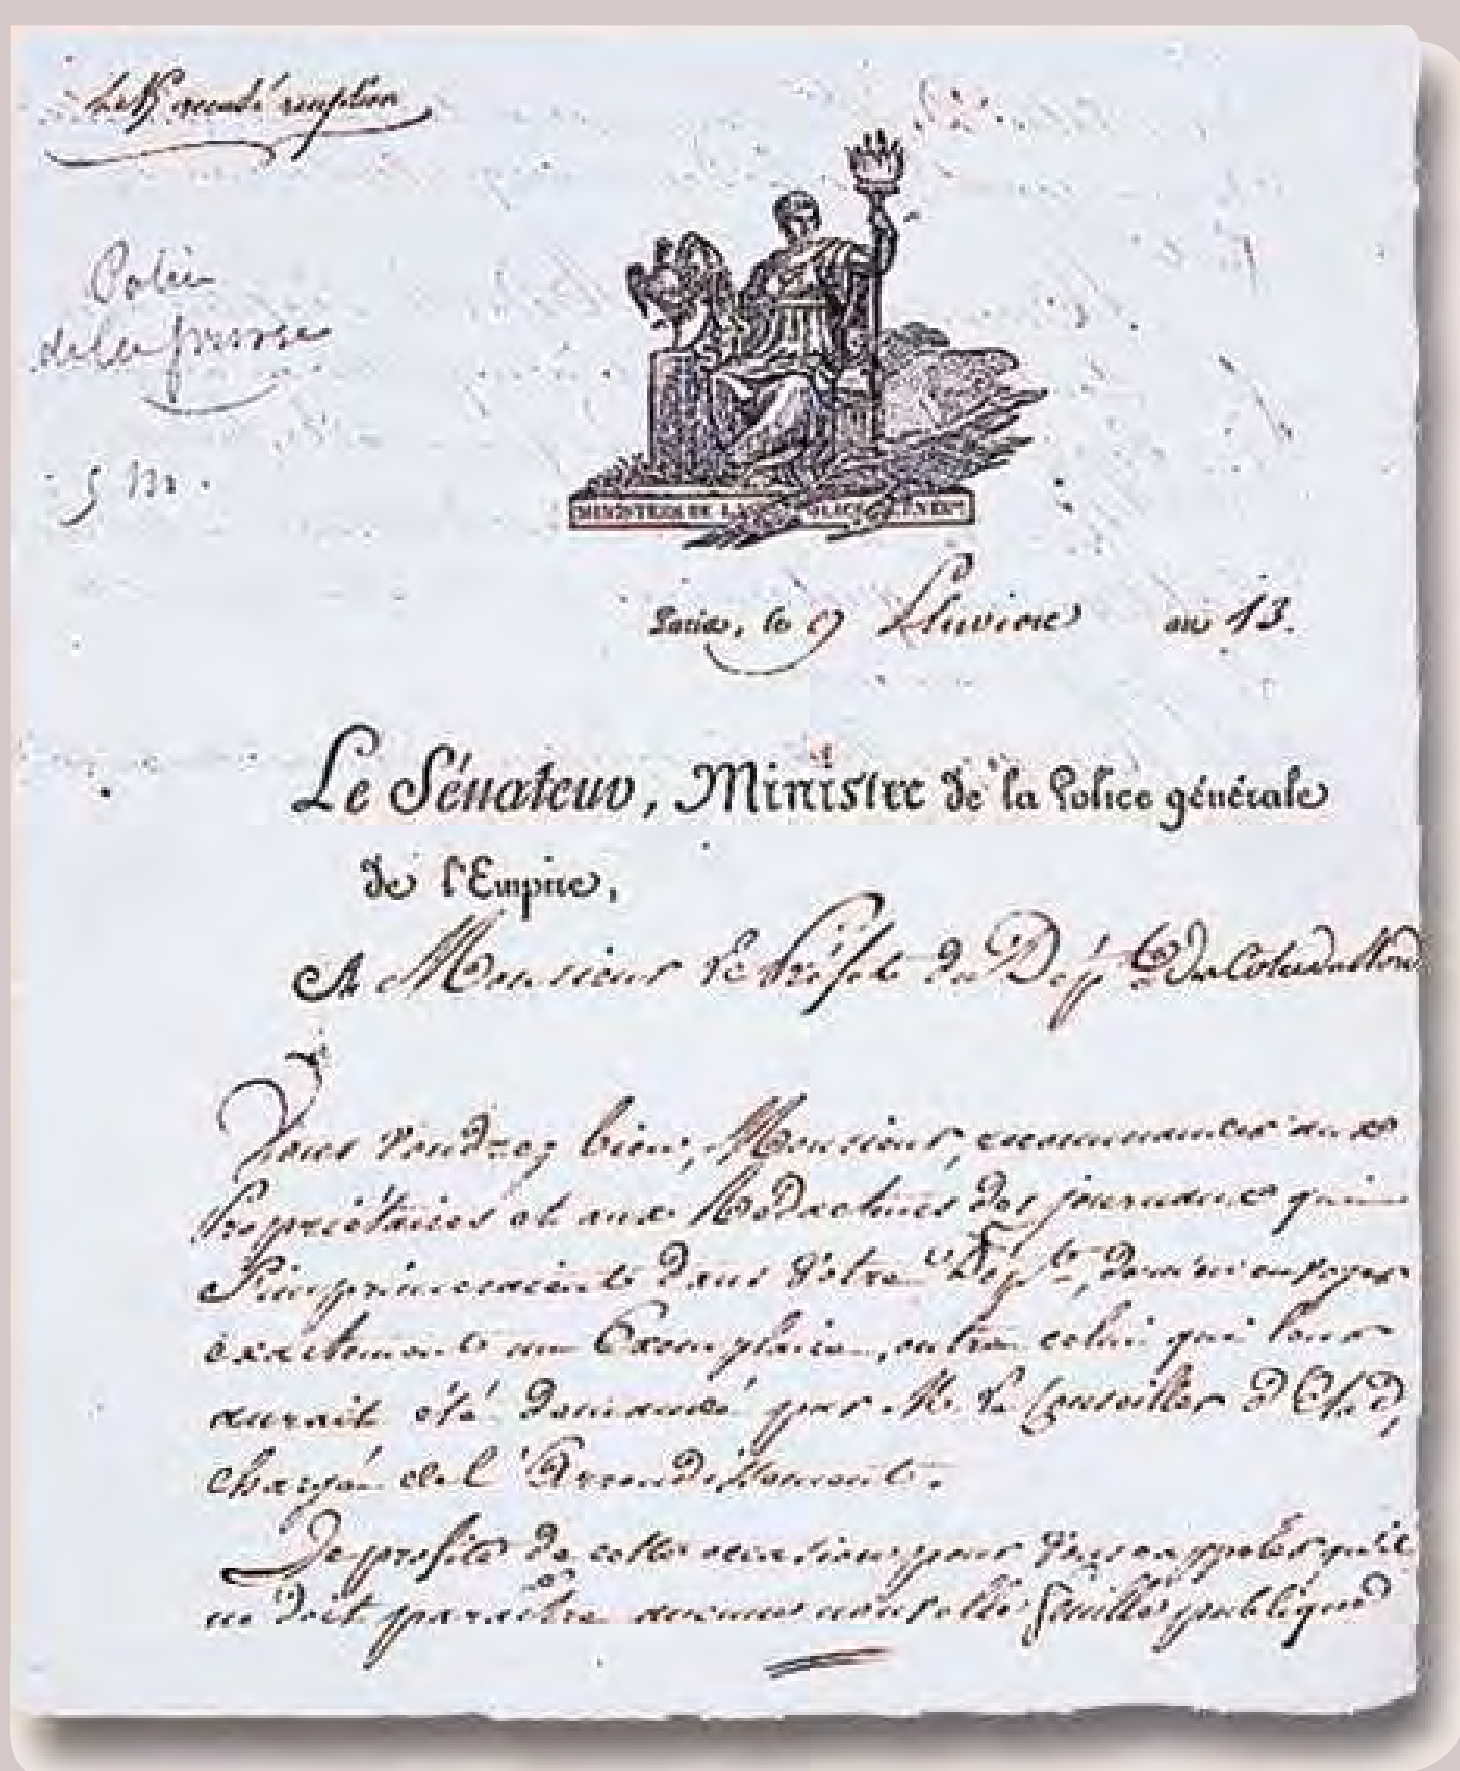 Police
de la presse
MINISTERE DE LA POLICE GÉNÉRle
Paris, le 9 Pluviose an 13.
Le Sénateur, Ministre de la Police générale
de l'Empire,
A Monsieur le Préfet du Dépt. des Cotes du Nord
Vous voudrez bien, Monsieur, recommander aux
Propriétaires et aux Rédacteurs des journaux qui
S'imprimeraient dans Votre Dépt. de m'en envoyer
exactement un Exemplaire, outre celui qui leur
aurait été demandé par Mr. Le Conseiller d'Etat,
chargé de l'Arrondissement.
Je profite de cette occasion pour vous rappeler qu'il
ne doit paraître aucunes nouvelles feuilles publiques